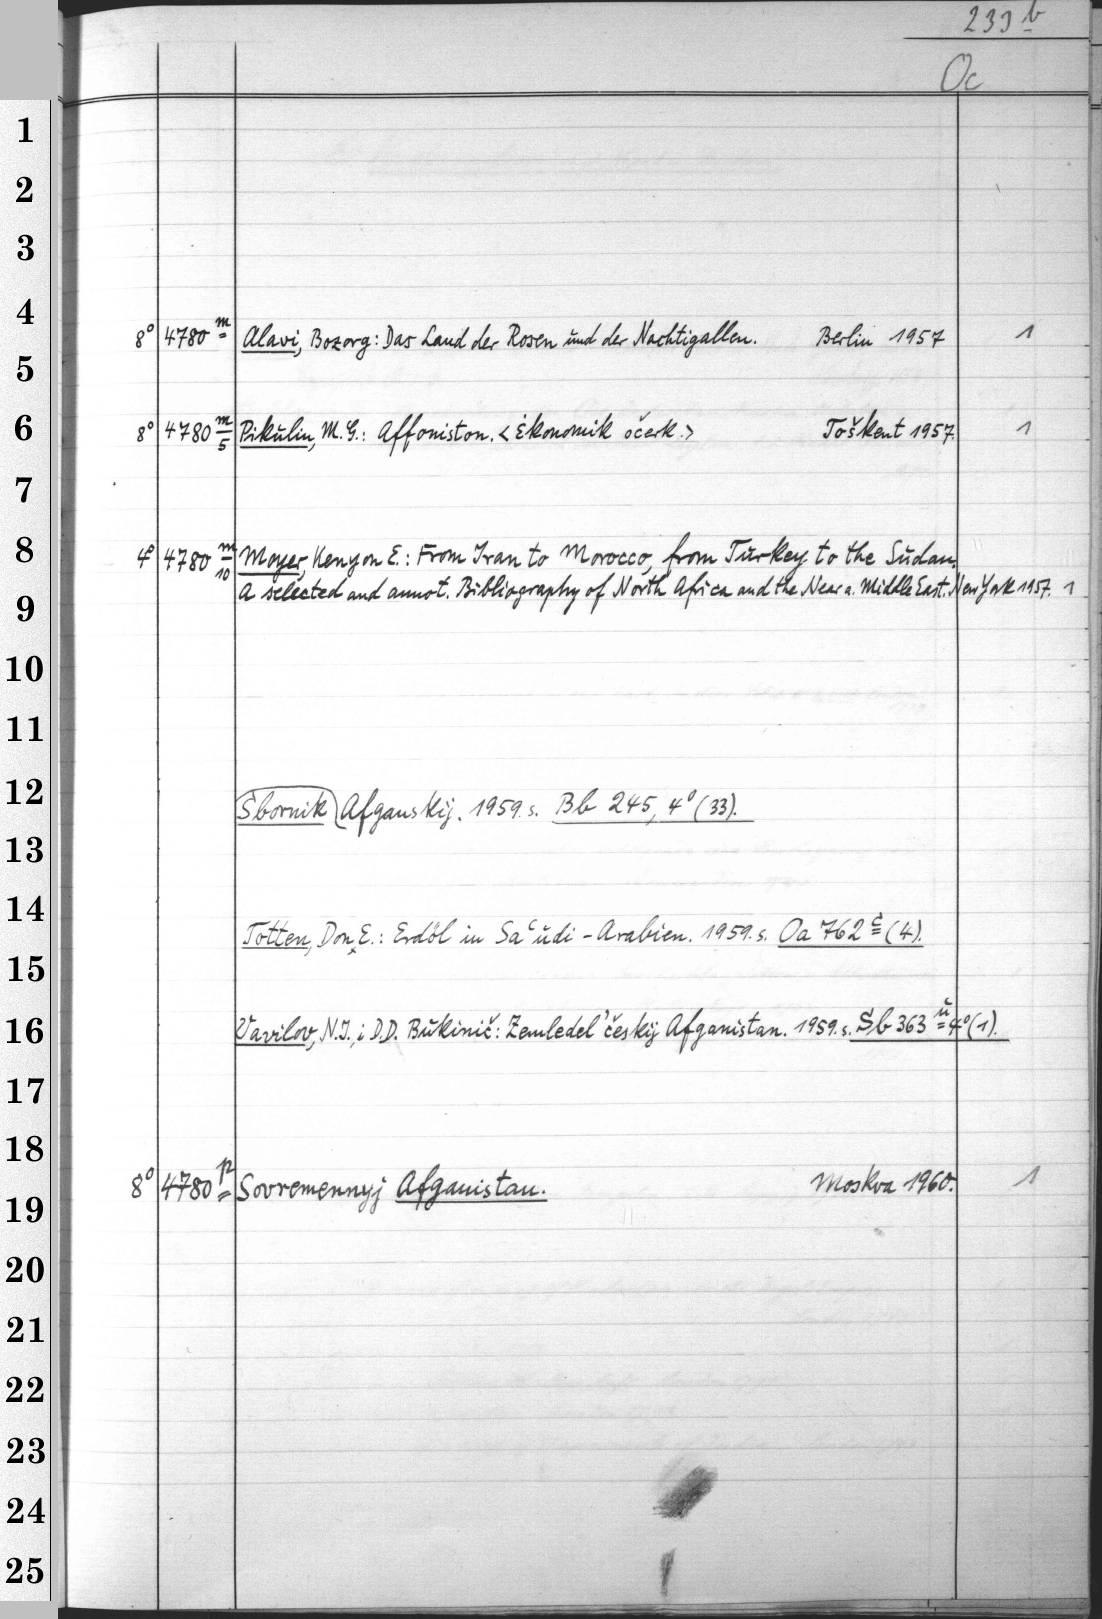 233 b
Oc
1
2
3
4
8° 4780 m Alavi, Bozorg: Das Land der Rosen und der Nachtigallen. Berlin 1957 1
5
6
8° 4780 m/5 Pikulin, M.G.: Affoniston. <Ėkonomik očerk.> Toškent 1957. 1
7
8
4° 4780 m/10 Moyer, Kenyon E.: From Iran to Morocco, from Turkey to the Sudan.
A selected and annot. Bibliography of North Africa and the Near a. Middle East. New York 1957. 1
9
10
11
12
Sbornik Afganskij. 1959. s. Bb 245, 4° (33).
13
14
Totten, Don E.: Erdöl in Saʿudi-Arabien. 1959. s. Oa 762 c (4).
15
16
Vavilov, N.I., i D.D. Bukinič: Zemledel'českij Afganistan. 1959. s. Sb 363 u 4° (1).
17
18
8° 4780 p Sovremennyj Afganistan. Moskva 1960. 1
19
20
21
22
23
24
25